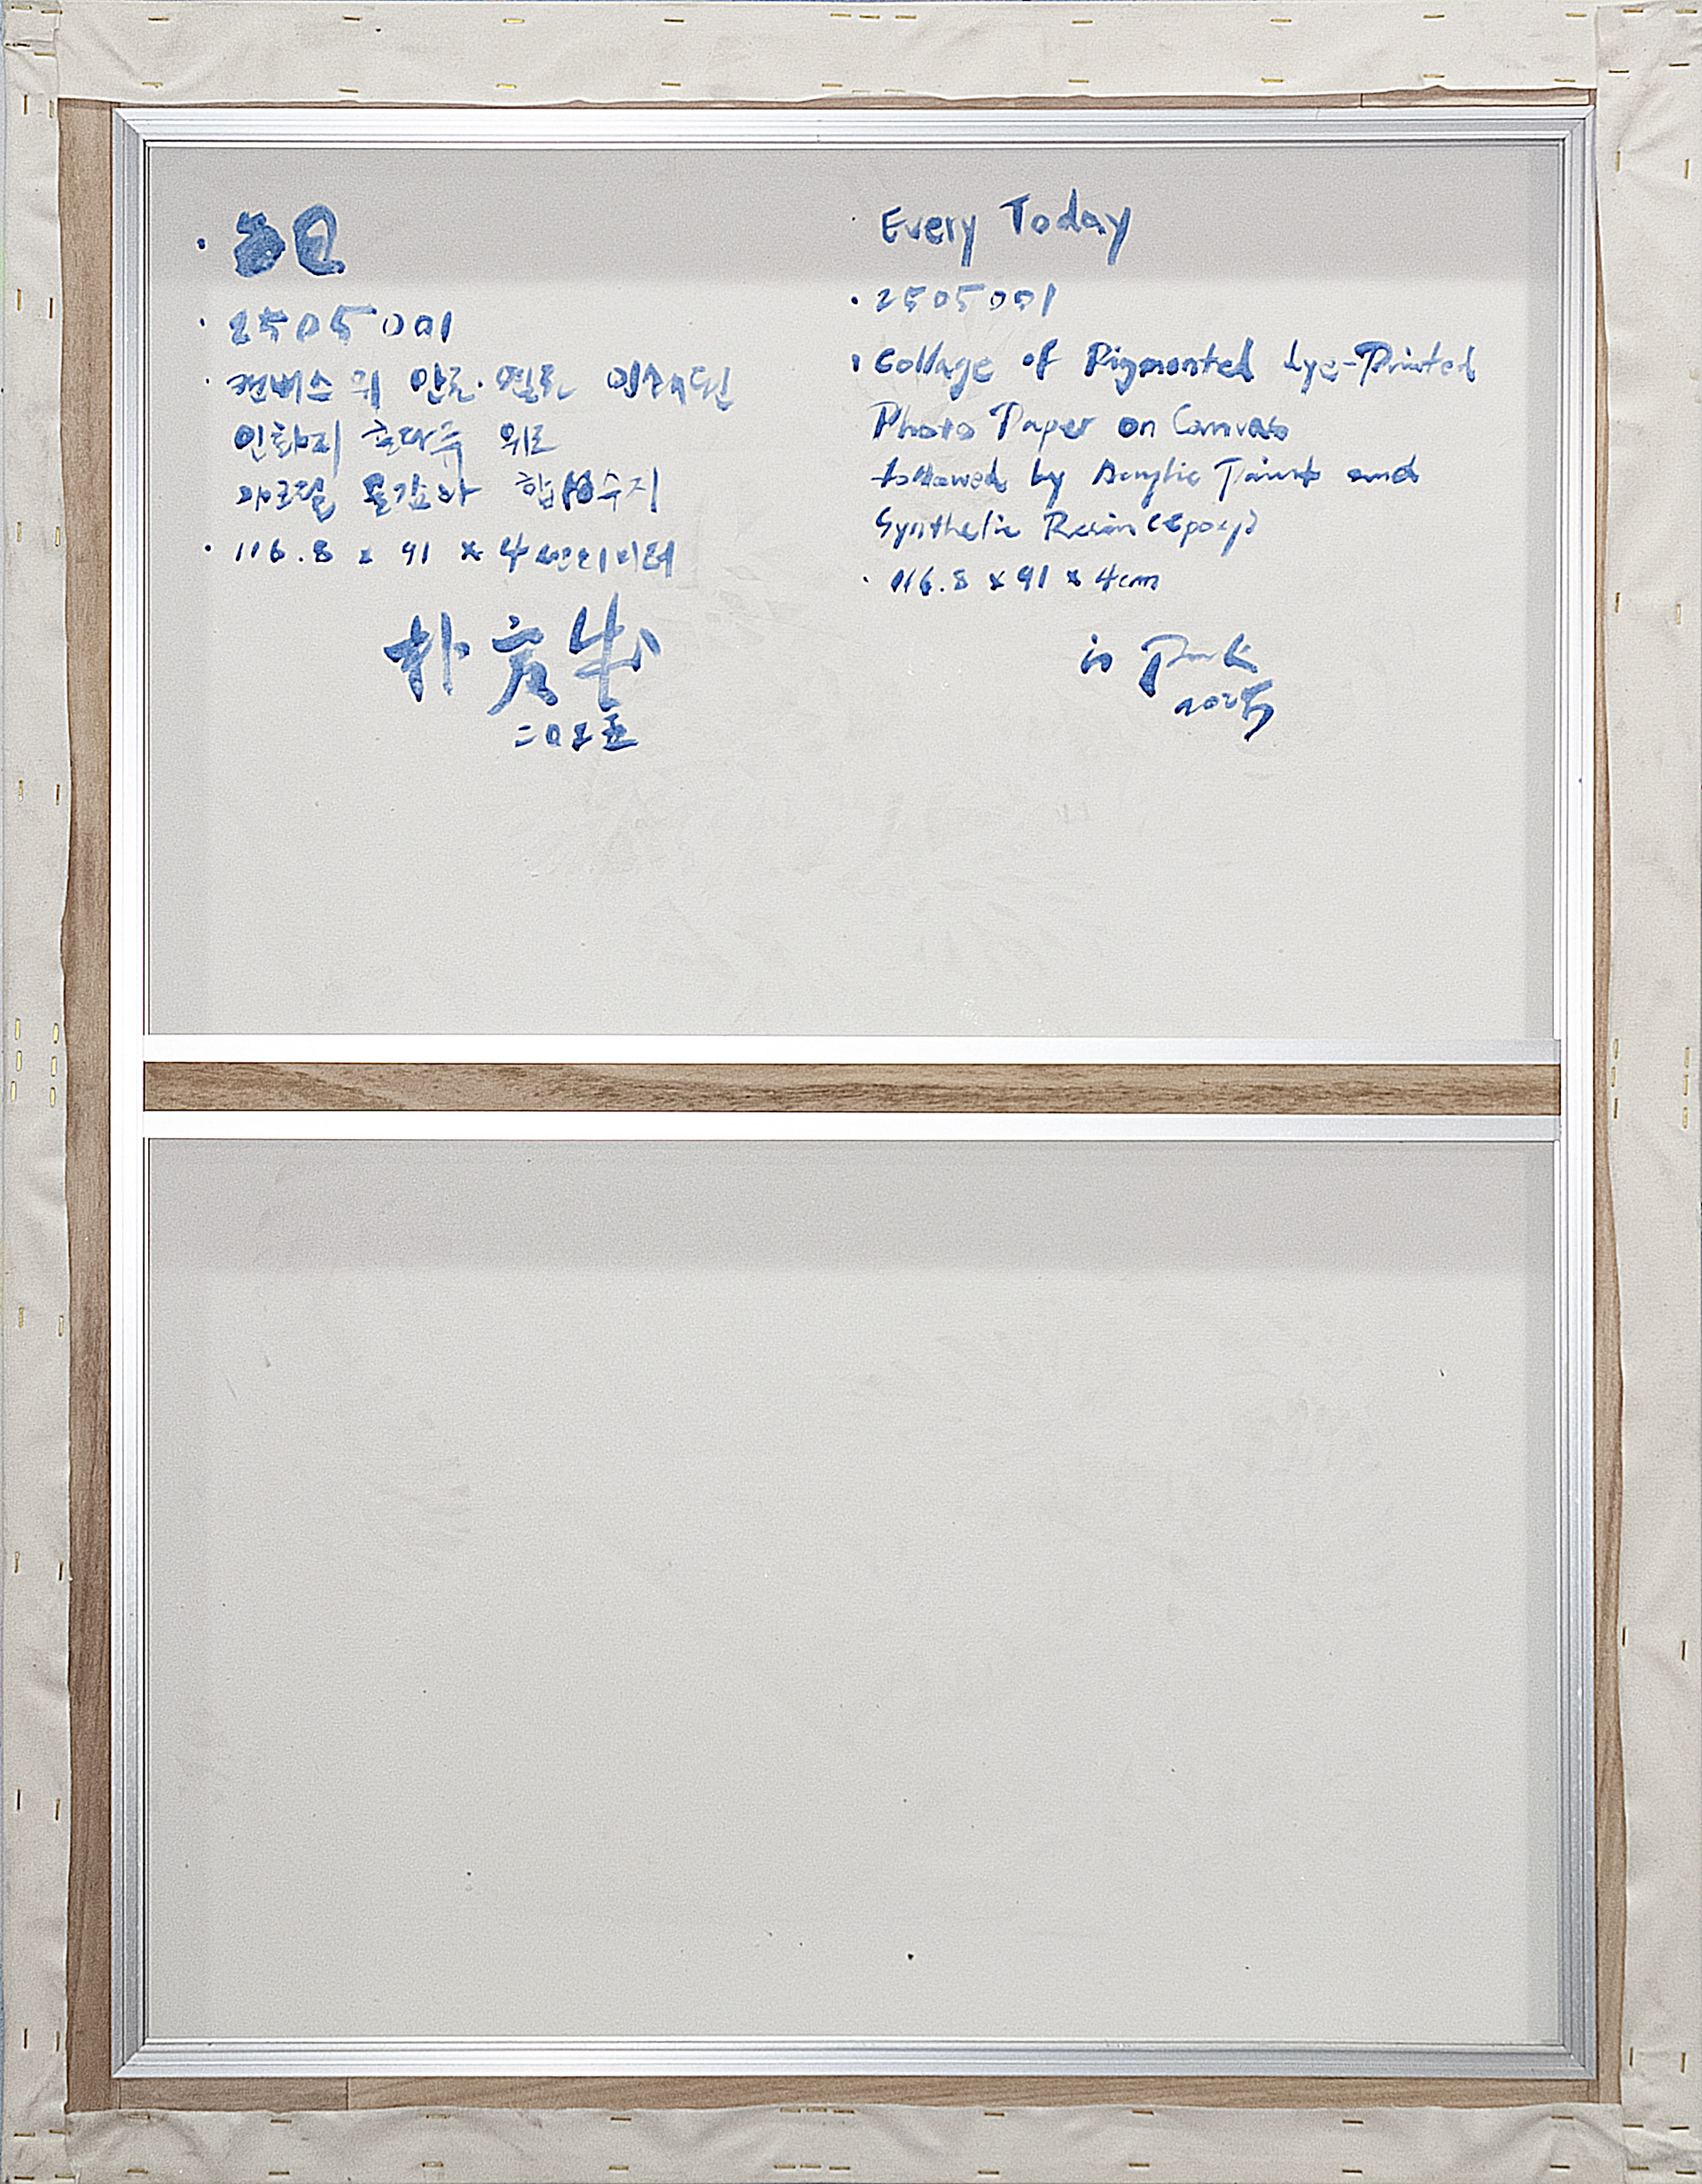 2505001
캔버스 위 안료·염료 인쇄된
인화지 콜라주 위로
아크릴 물감과 합성수지
116.8 x 91 x 4 센티미터
朴
二〇二五
Every Today
2505001
Collage of Pigmented dye-Printed
Photo Paper on Canvas
followed by Acrylic Paint and
Synthetic Resin (Epoxy)
116.8 x 91 x 4cm
Park
2025